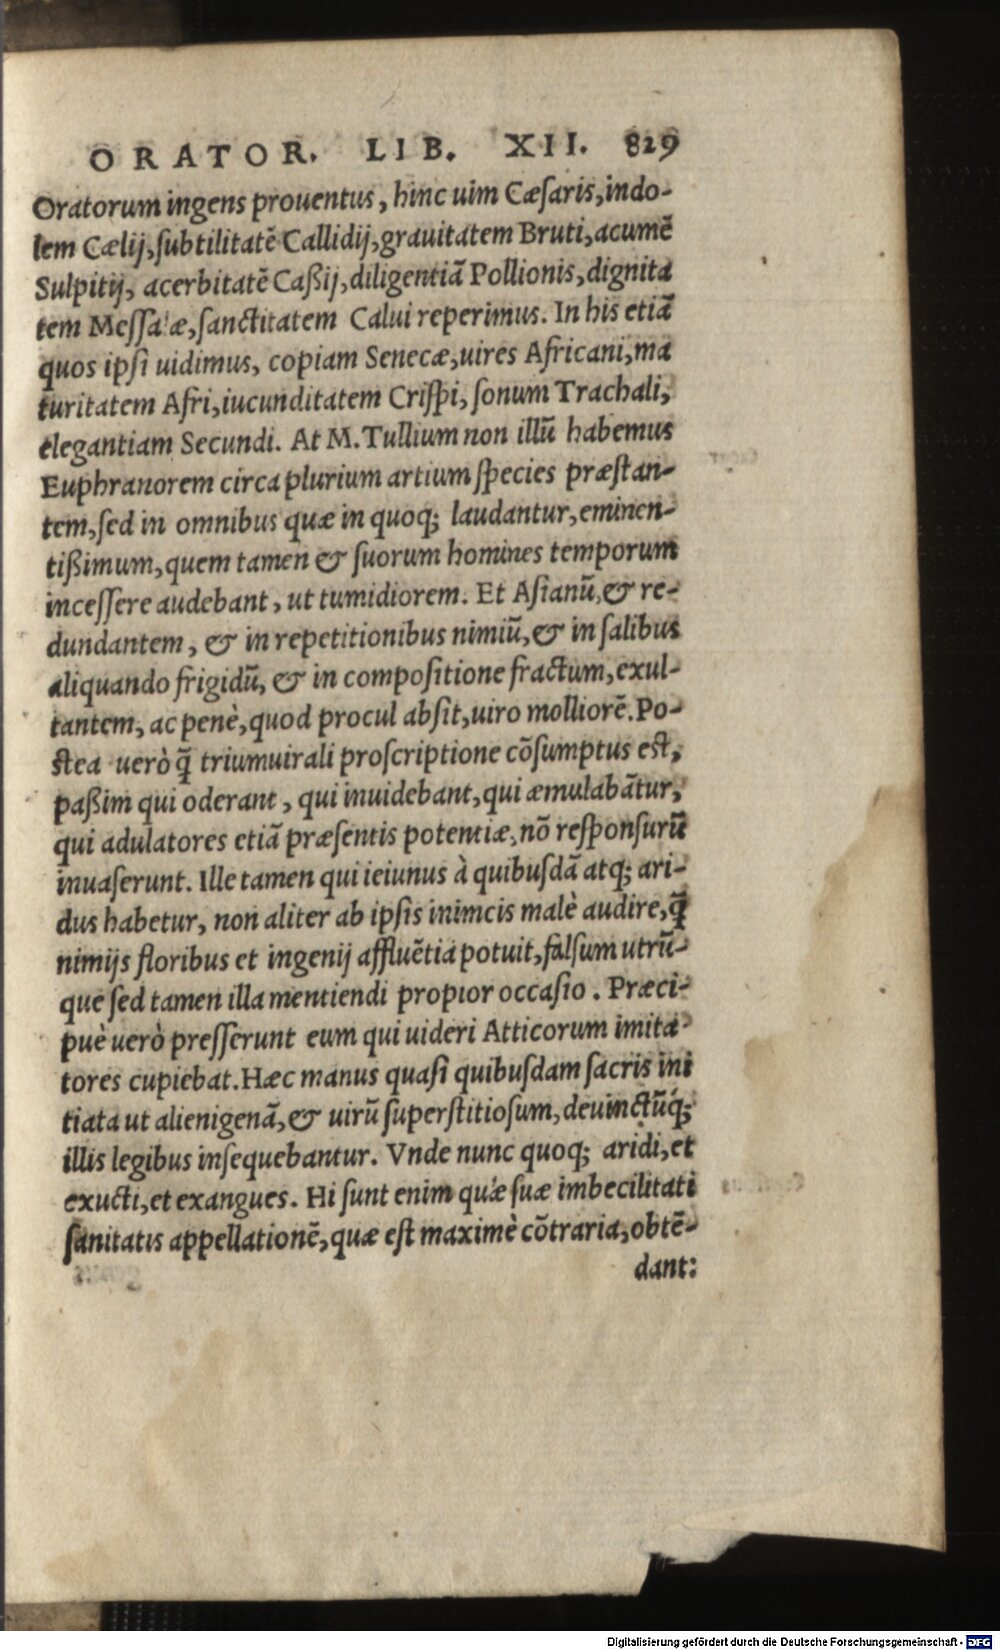 ORATOR. LIB. XII. 829
Oratorum ingens prouentus, hinc uim Cæsaris, indo-
lem Cælij, subtilitatē Callidij, grauitatem Bruti, acumē
Sulpitij, acerbitatē Caßij, diligentiā Pollionis, dignita
tem Messalæ, sanctitatem Calui reperimus. In his etiā
quos ipsi uidimus, copiam Senecæ, uires Africani, ma
turitatem Afri, iucunditatem Crispi, sonum Trachali,
elegantiam Secundi. At M. Tullium non illū habemus
Euphranorem circa plurium artium species præstan-
tem, sed in omnibus quæ in quoq; laudantur, eminen-
tißimum, quem tamen & suorum homines temporum
incessere audebant, ut tumidiorem. Et Asianū, & re-
dundantem, & in repetitionibus nimiū, & in salibus
aliquando frigidū, & in compositione fractum, exul-
tantem, ac penè, quod procul absit, uiro molliorē. Po-
stea uerò q̄ triumuirali proscriptione cōsumptus est,
paßim qui oderant, qui inuidebant, qui æmulabātur,
qui adulatores etiā præsentis potentiæ, nō responsurū
inuaserunt. Ille tamen qui ieiunus à quibusdā atq; ari-
dus habetur, non aliter ab ipsis inimcis malè audire, q̄
nimijs floribus et ingenij affluētia potuit, falsum utrū-
que sed tamen illa mentiendi propior occasio. Præci-
puè uerò presserunt eum qui uideri Atticorum imita-
tores cupiebat. Hæc manus quasi quibusdam sacris ini
tiata ut alienigenā, & uirū superstitiosum, deuinctūq;
illis legibus insequebantur. Vnde nunc quoq; aridi, et
exucti, et exangues. Hi sunt enim quæ suæ imbecilitati
sanitatis appellationē, quæ est maximè cōtraria, obtē-
dant:
Digitalisierung gefördert durch die Deutsche Forschungsgemeinschaft - DFG